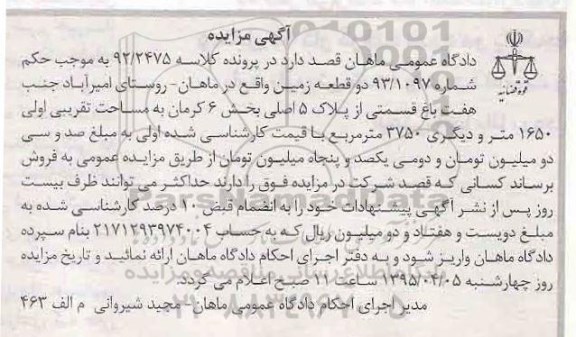 آگهی مزایده
دادگاه عمومی ماهان قصد دارد در پرونده کلاسه ۹۲/۲۴۷۵ به موجب حکم
شماره ۹۳/۱۰۹۷ دو قطعه زمین واقع در ماهان- روستای امیرآباد جنب
هفت باغ قسمتی از پلاک ۵ اصلی بخش ۶ کرمان به مساحت تقریبی اولی
۱۶۵۰ متر و دیگری ۳۷۵۰ مترمربع با قیمت کارشناسی شده اولی به مبلغ صد و سی
دو میلیون تومان و دومی یکصد و پنجاه میلیون تومان از طریق مزایده عمومی به فروش
برساند کسانی که قصد شرکت در مزایده فوق را دارند حداکثر می توانند ظرف بیست
روز پس از نشر آگهی پیشنهادات خود را به انضمام فیش ۱۰ درصد کارشناسی شده به
مبلغ دویست و هفتاد و دو میلیون ریال که به حساب ۲۱۷۱۲۹۳۹۷۴۰۰۴ بنام سپرده
دادگاه ماهان واریز شود و به دفتر اجرای احکام دادگاه ماهان ارائه نمائید و تاریخ مزایده
روز چهارشنبه ۱۳۹۵/۰۴/۰۵ ساعت ۱۱ صبح اعلام می گردد.
مدیر اجرای احکام دادگاه عمومی ماهان- مجید شیروانی م الف ۴۶۳
قوه قضائیه